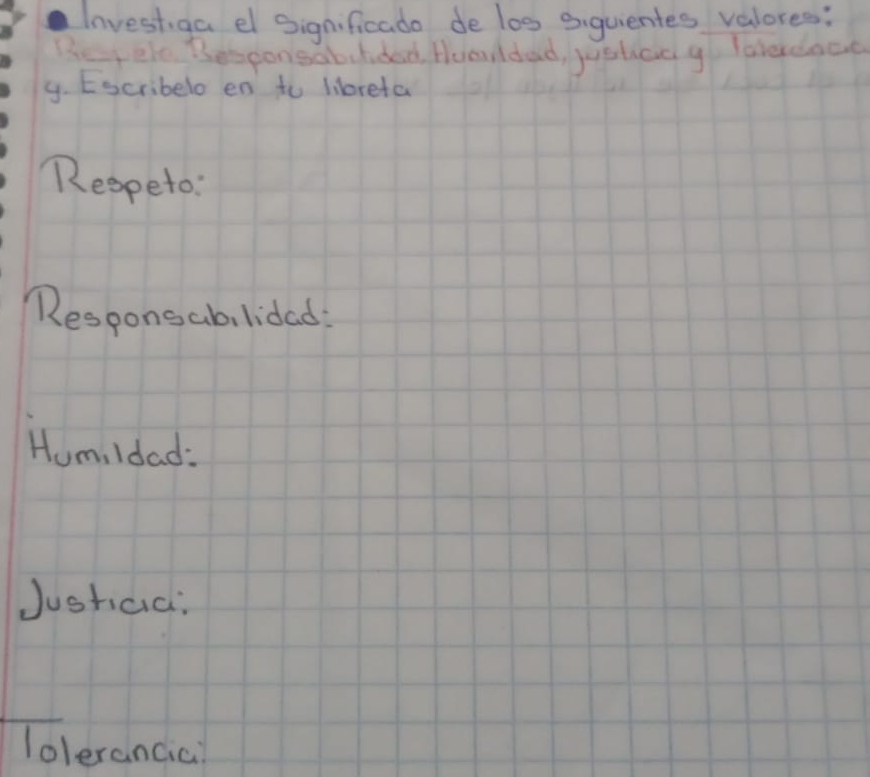 • Investiga el significado de los siguientes valores:
Respeto, Responsabilidad, Humildad, justicia y Tolerancia
y. Escribelo en tu libreta
Respeto:
Responsabilidad:
Humildad:
Justicia:
Tolerancia: